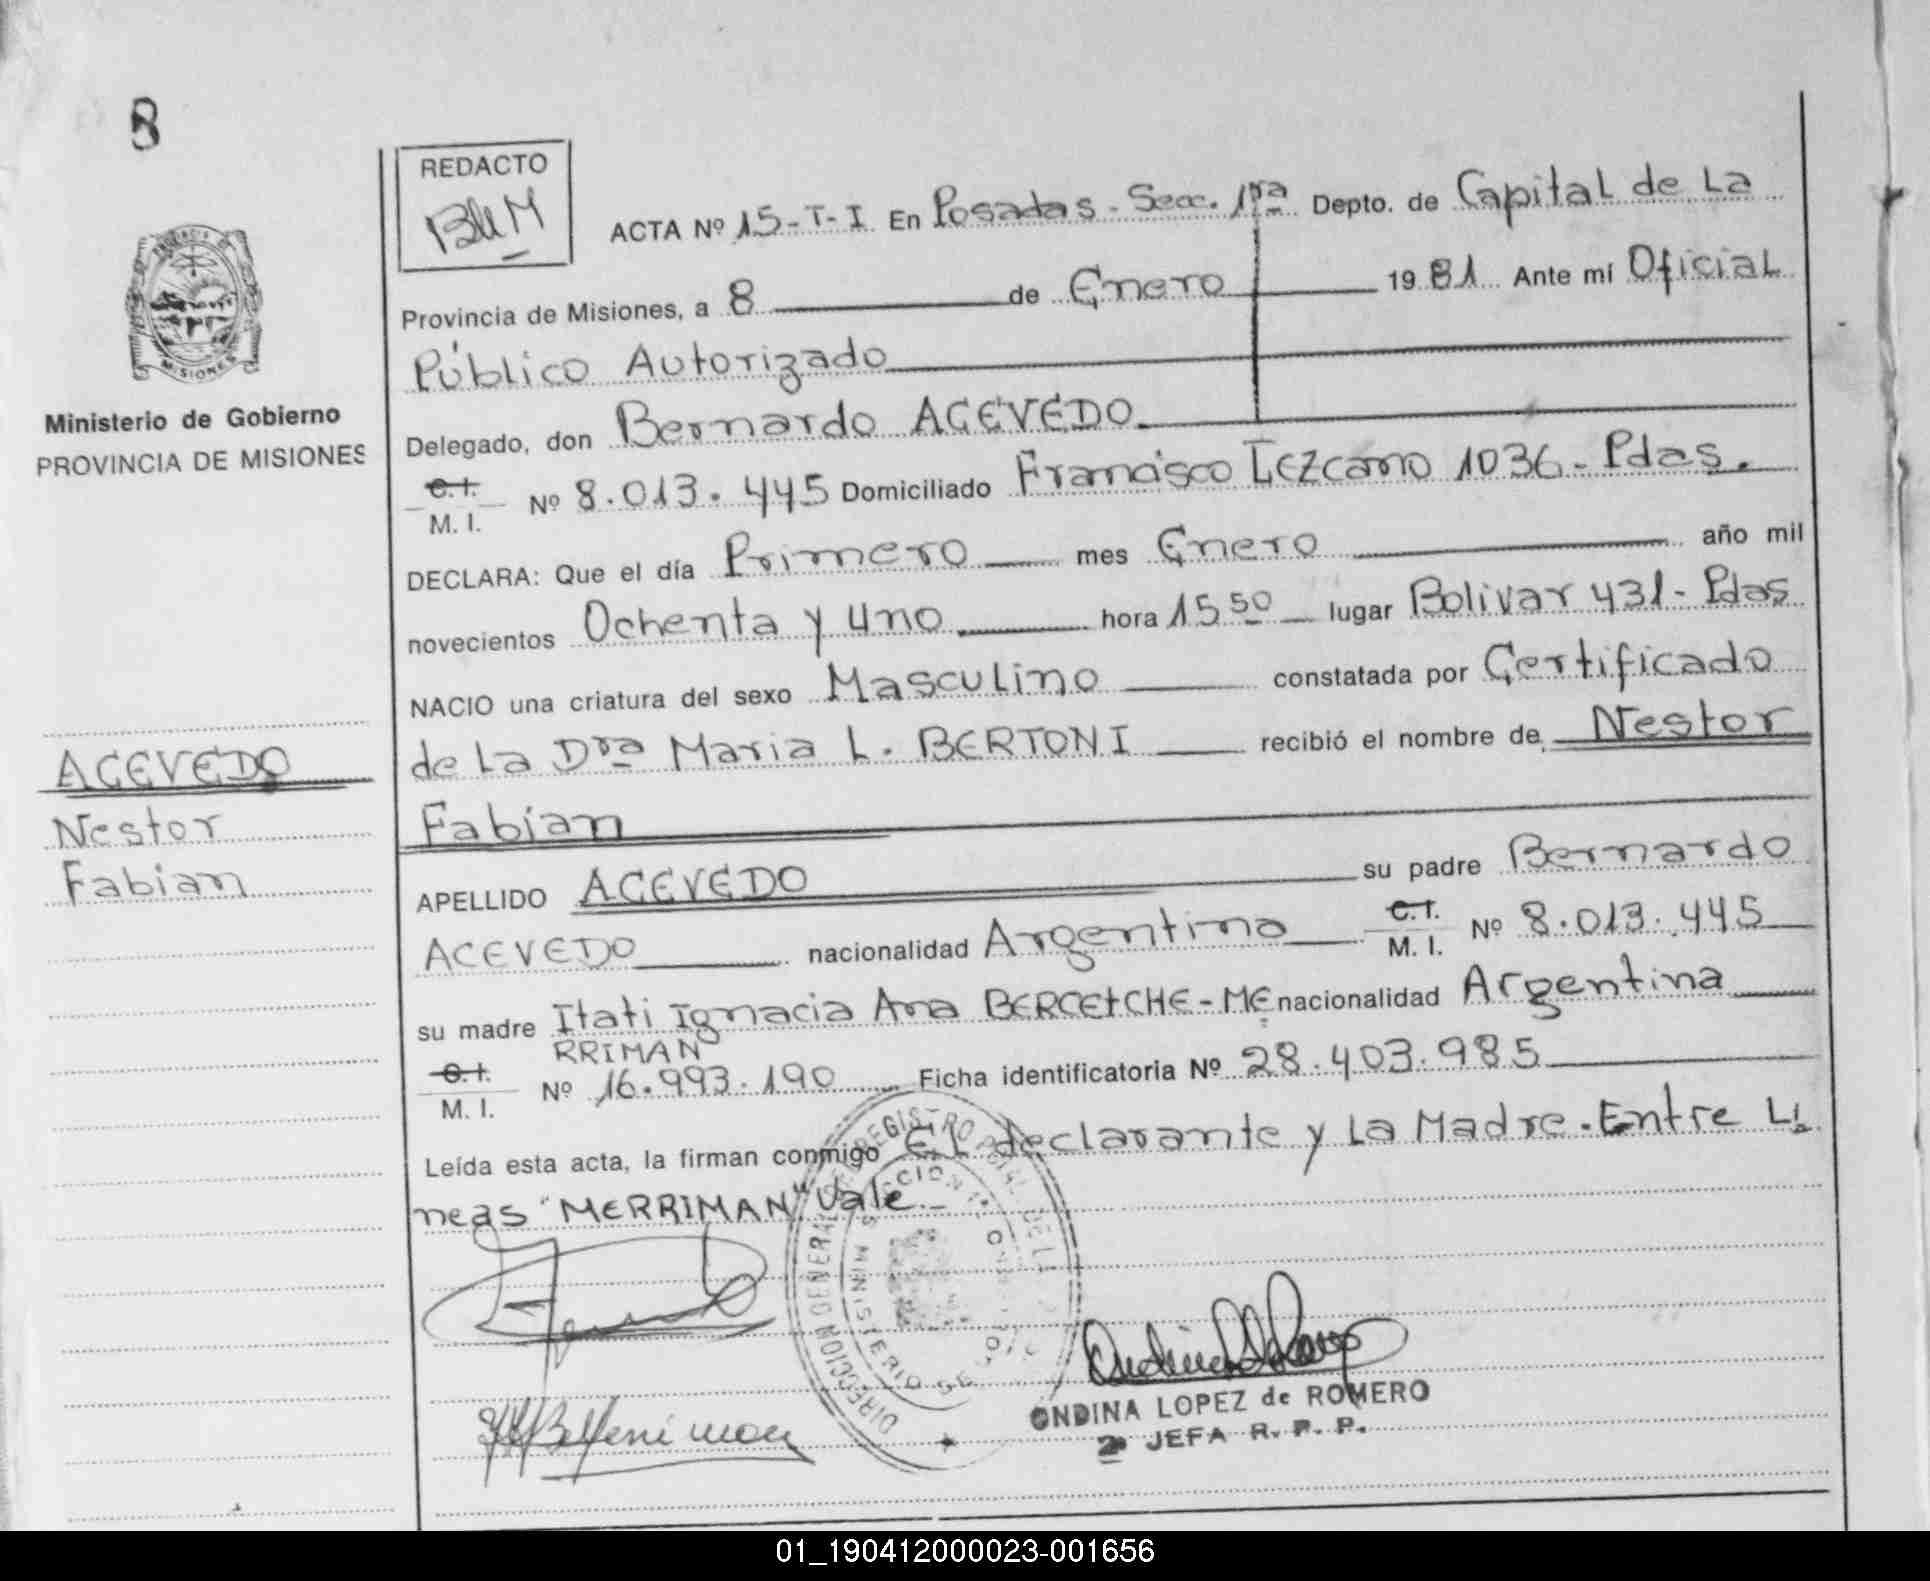 8
REDACTO
ACTA Nº 15-T-I En Posadas - Secc. 1ra Depto. de Capital de La
Provincia de Misiones, a 8 de Enero 1981 Ante mí Oficial
Público Autorizado
Ministerio de Gobierno
PROVINCIA DE MISIONES
Delegado, don Bernardo ACEVEDO
C.I. M. I. Nº 8.013.445 Domiciliado Francisco Lezcano 1036 - Pdas.
DECLARA: Que el día Primero mes Enero año mil
novecientos Ochenta y uno hora 15 50 lugar Bolivar 431 - Pdas
NACIO una criatura del sexo Masculino constatada por Certificado
de La Dra Maria L. BERTONI recibió el nombre de Nestor
Fabian
ACEVEDO
Nestor
Fabian
APELLIDO ACEVEDO su padre Bernardo
ACEVEDO nacionalidad Argentina C.I. M. I. Nº 8.013.445
su madre Itati Ignacia Ana BERCETCHE - ME nacionalidad Argentina
RRIMAN
C.I. M. I. Nº 16.993.190 Ficha identificatoria Nº 28.403.985
Leída esta acta, la firman conmigo EL declarante y La Madre. Entre Lí
neas "MERRIMAN" Vale.
DIRECCION GENERAL DE REGISTRO
MINISTERIO DE
ONDINA LOPEZ de ROMERO
2ª JEFA R. P. P.
01_190412000023-001656